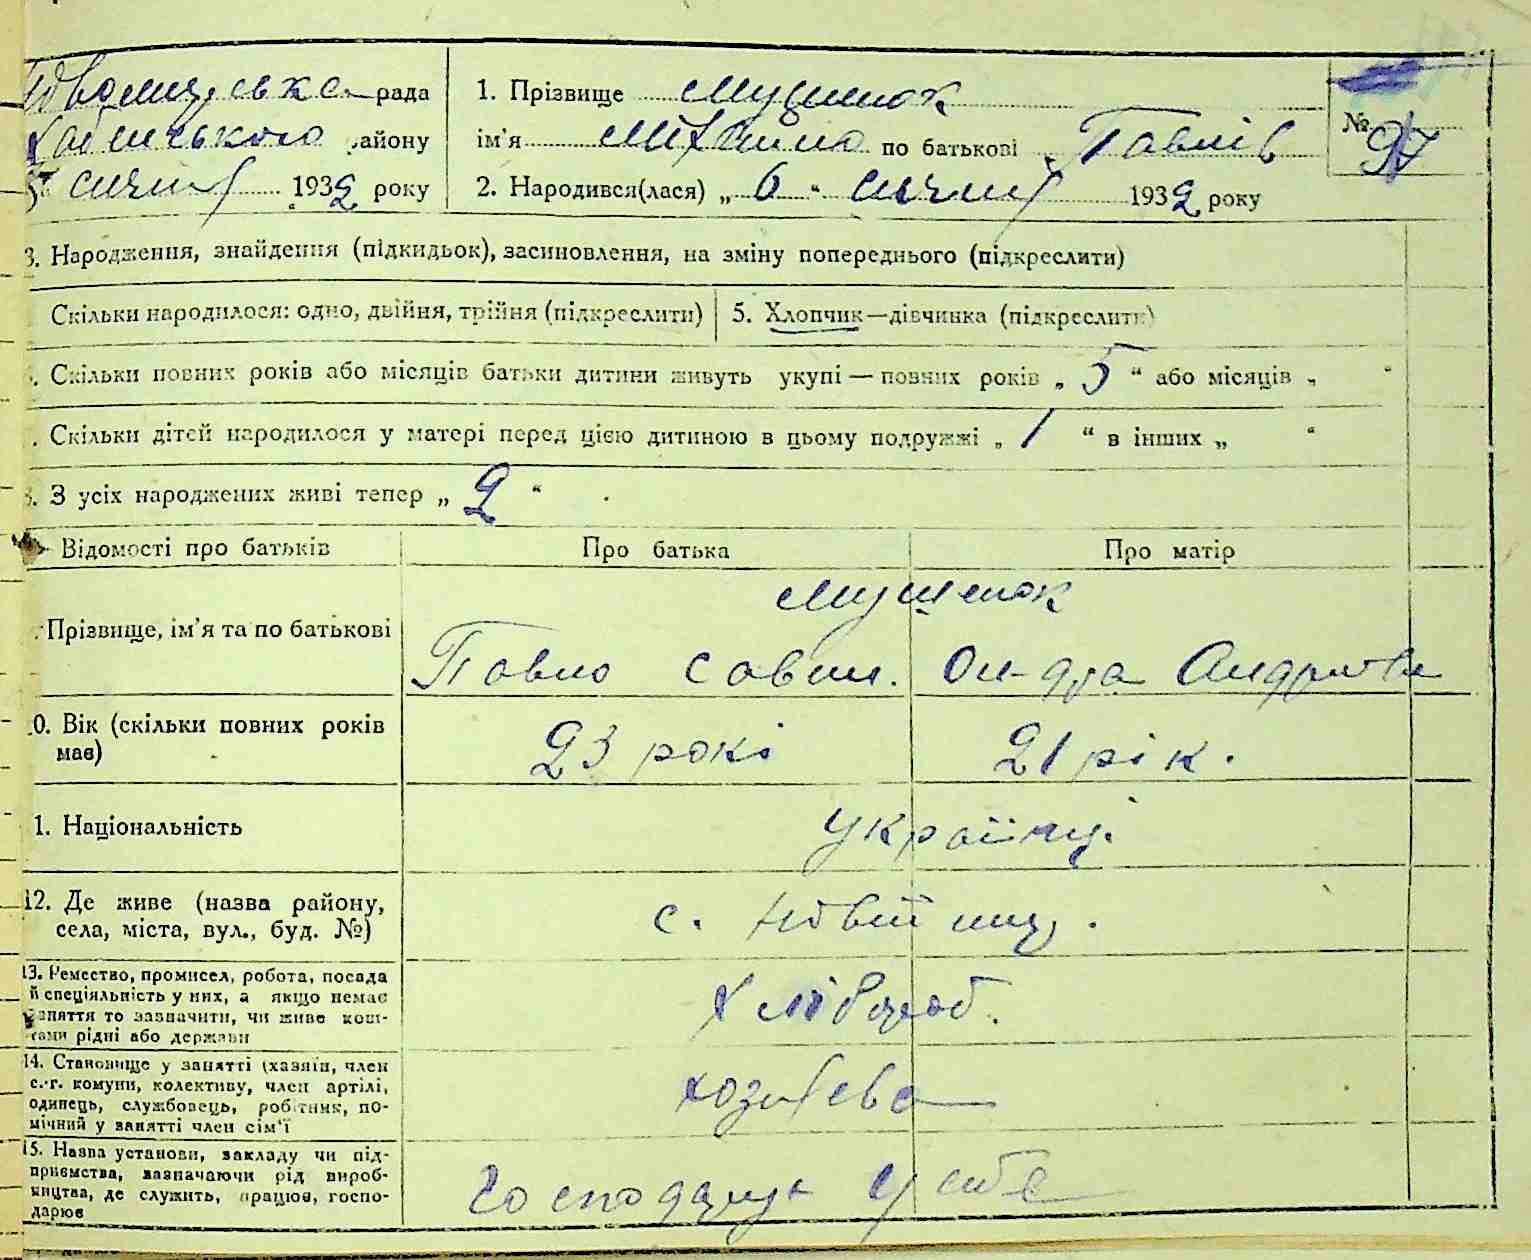 рада 1. Прізвище Мушенок
району ім'я Михайло по батькові Павлів № 97
січня 1932 року 2. Народився(лася) „ 6 “ січня 1932 року
3. Народження, знайдення (підкидьок), засиновлення, на зміну попереднього (підкреслити)
Скільки народилося: одно, двійня, трійня (підкреслити) 5. Хлопчик—дівчинка (підкреслити)
. Скільки повних років або місяців батьки дитини живуть укупі — повних років „ 5 “ або місяців „ “
. Скільки дітей народилося у матері перед цією дитиною в цьому подружжі „ 1 “ в інших „ “
8. З усіх народжених живі тепер „ 2 “
Відомості про батьків Про батька Про матір
Мушенок
Прізвище, ім'я та по батькові Павло Савин. Андріівн
10. Вік (скільки повних років має) 23 рокі 21 рік.
1. Національність українці
12. Де живе (назва району, села, міста, вул., буд. №) с. Новий
13. Ремество, промисел, робота, посада
й спеціяльність у них, а якщо немає
заняття то зазначити, чи живе кош-
тами рідні або держави
Хлібороб.
14. Становище у занятті (хазяїн, член
с.-г. комуни, колективу, член артілі,
одинець, службовець, робітник, по-
мічний у занятті член сім'ї
хозяєва
15. Назва установи, закладу чи під-
приємства, зазначаючи рід вироб-
ництва, де служить, працює, госпо-
дарює
Господарує у себе